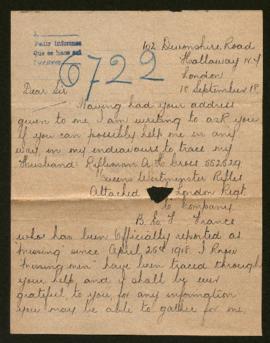 Pour informer
6722
102 Devonshire Road
Holloway N.7
London
18 September 18
Dear Sir
Having had your address
given to me I am writing to ask you
if you can possibly help me in any
way in my endeavours to trace my
Husband: Rifleman A. H. Cross 552629
Queens Westminster Rifles
Attached London Regt
Company
B.E.F. France
who has been Officially reported as
"missing" since April 26th 1918. I know
"missing men" have been traced through
your help and it shall by ever
grateful to you for any information
you may be able to gather for me.